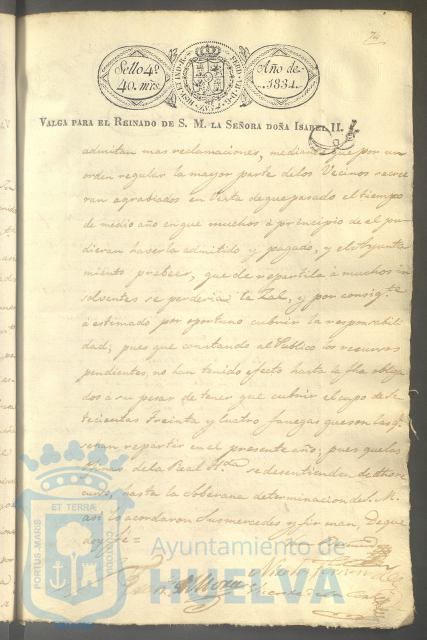 74
Sello 4º
40. mrs.
HISP. ET IND. R.
FERD. VII. D. G.
Año de
1834.
VALGA PARA EL REINADO DE S. M. LA SEÑORA DOÑA ISABEL II.
admitan mas reclamaciones, mediante que por un
orden regular la mayor parte delos Vecinos se cree
ran agrabiados en Vista de que pasado el tiempo
de medio año en que muchos à principio de el pu
dieran haverla admitido y pagado, y el Ayunta
miento prebeer, que de repartirla à muchos in
solventes se perderia la Sal, y por consigte
à estimado por oportuno cubrir la responsabili
dad; pues que constando al Publico los recursos
pendientes, no han tenido efecto hasta la fha obliga
dos à su pesar de tener que cubrir el cupo de Se
tecientas Treinta y cuatro fanegas que son las q.
se han repartir en el presente año; pues que las
de la Real se desentienden de
hasta la Soberana determinacion de S. M.
asi lo acordaron Sus mercedes y firman, De que
doy fe =
PORTUS MARIS
ET TERRÆ
CUSTODIA
Ayuntamiento de
HUELVA